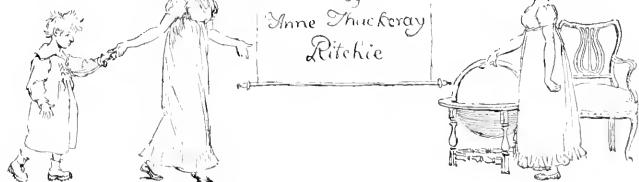 Anne Thackeray
Ritchie